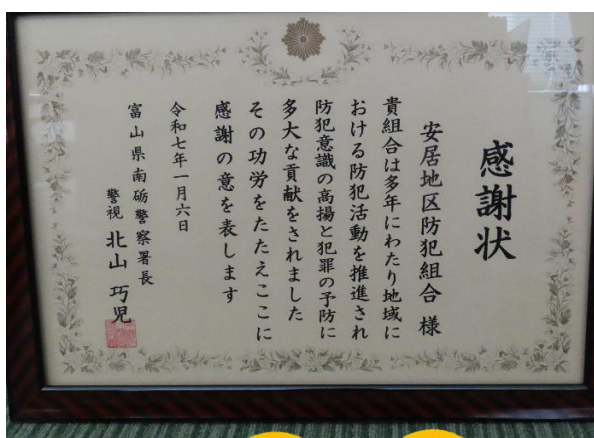 感謝状
安居地区防犯組合 様
貴組合は多年にわたり地域に
おける防犯活動を推進され
防犯意識の高揚と犯罪の予防に
多大な貢献をされました
その功労をたたえここに
感謝の意を表します
令和七年一月六日
富山県南砺警察署長
警視 北山巧児